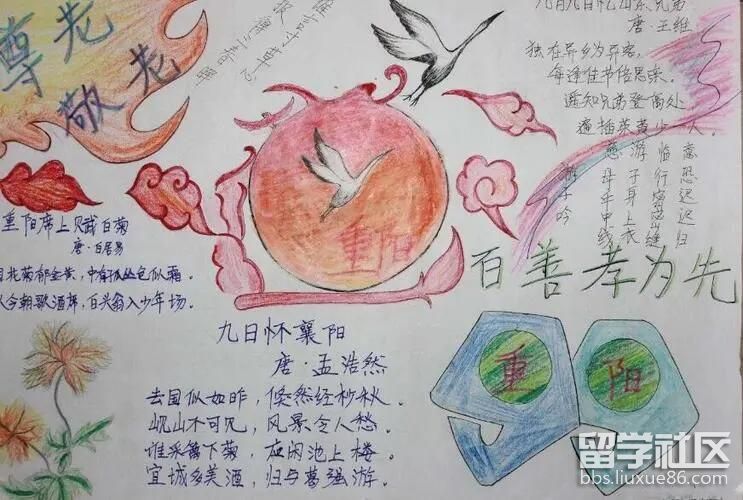 尊老
敬老
谁言寸草心
报得三春晖
九月九日忆山东兄弟
唐·王维
独在异乡为异客,
每逢佳节倍思亲。
遥知兄弟登高处
遍插茱萸少一人。
游子吟
慈母手中线
游子身上衣
临行密密缝
意恐迟迟归
重阳
百善孝为先
重阳席上赋白菊
唐·白居易
园花菊郁金黄,中有孤丛色似霜。
从今朝歌酒席,白头翁入少年场。
九日怀襄阳
唐·孟浩然
去国似如昨,倏然经杪秋。
岘山不可见,风景令人愁。
谁采篱下菊,应闲池上楼。
宜城多美酒,归与葛强游。
重 阳
留学社区
bbs.liuxue86.com